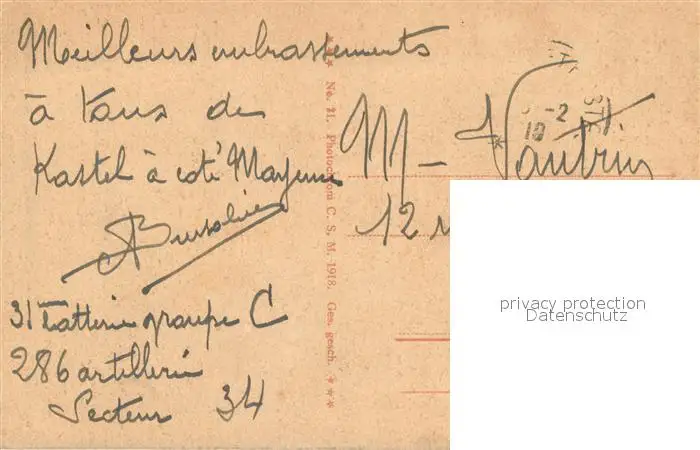 Meilleurs embrassements
à tous de
Kastel à coté Mayence
31 batterie groupe C
286 artillerie
Secteur 34
*** No. 21. Photochromi C. S. M. 1918. Ges. gesch. ***
M- Vautrin
12
-2
19
privacy protection
Datenschutz